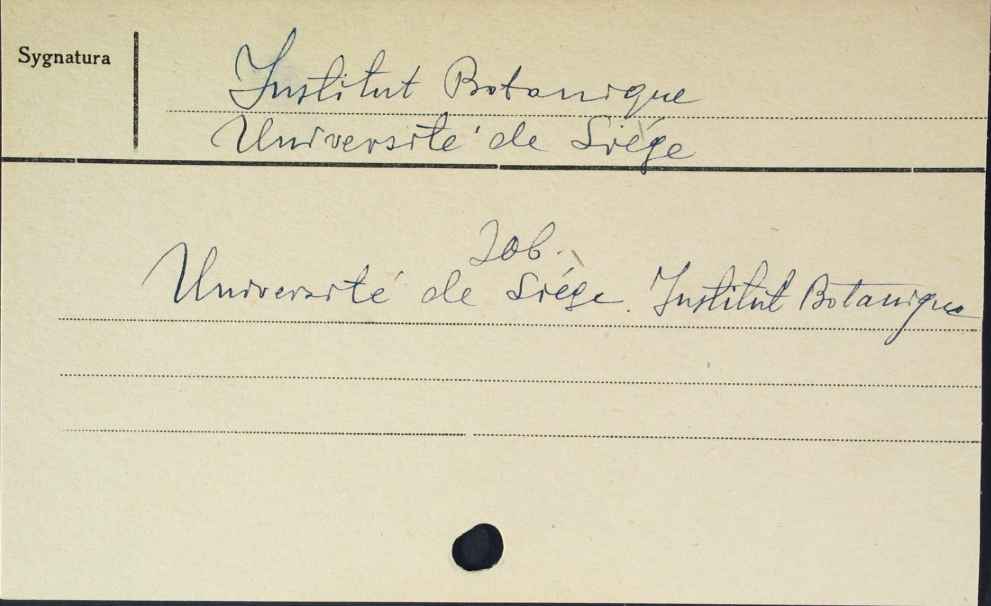 Sygnatura
Institut Botanique
Université de Liège
Zob.
Université de Liège. Institut Botanique